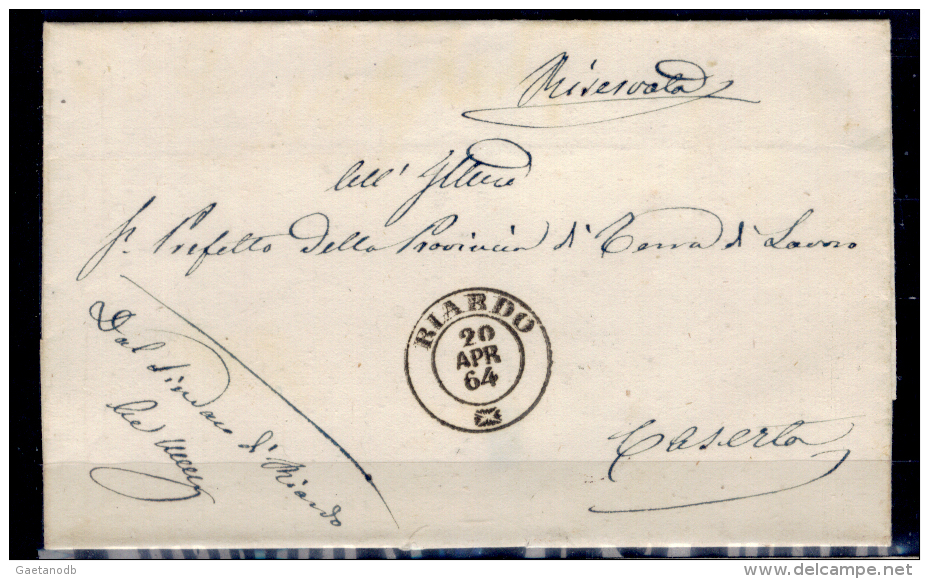 Riservata
All' Ill.mo
Sr Prefetto della Provincia di Terra di Lavoro
RIARDO
20
APR
64
Dal Sindaco di Riardo
Caserta
Gaetanodb
www.delcampe.net